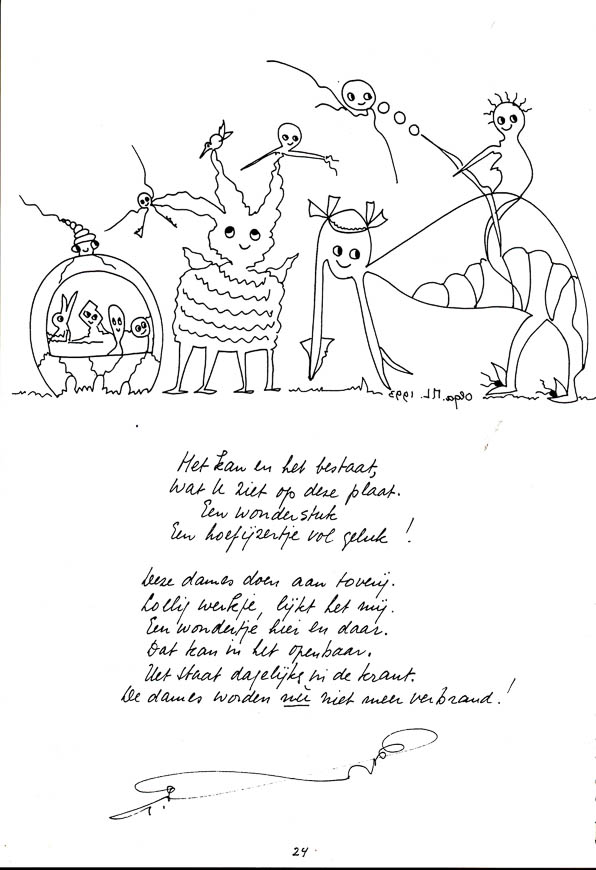 Olga.M.L. 1993
Het kan en het bestaat,
wat U ziet op deze plaat.
Een wonderstuk
Een hoefijzertje vol geluk !
Deze dames doen aan toverij.
Lollig werkje, lijkt het mij.
Een wondertje hier en daar.
Dat kan in het openbaar.
Het staat dagelijks in de krant.
De dames worden nù niet meer verbrand!
24